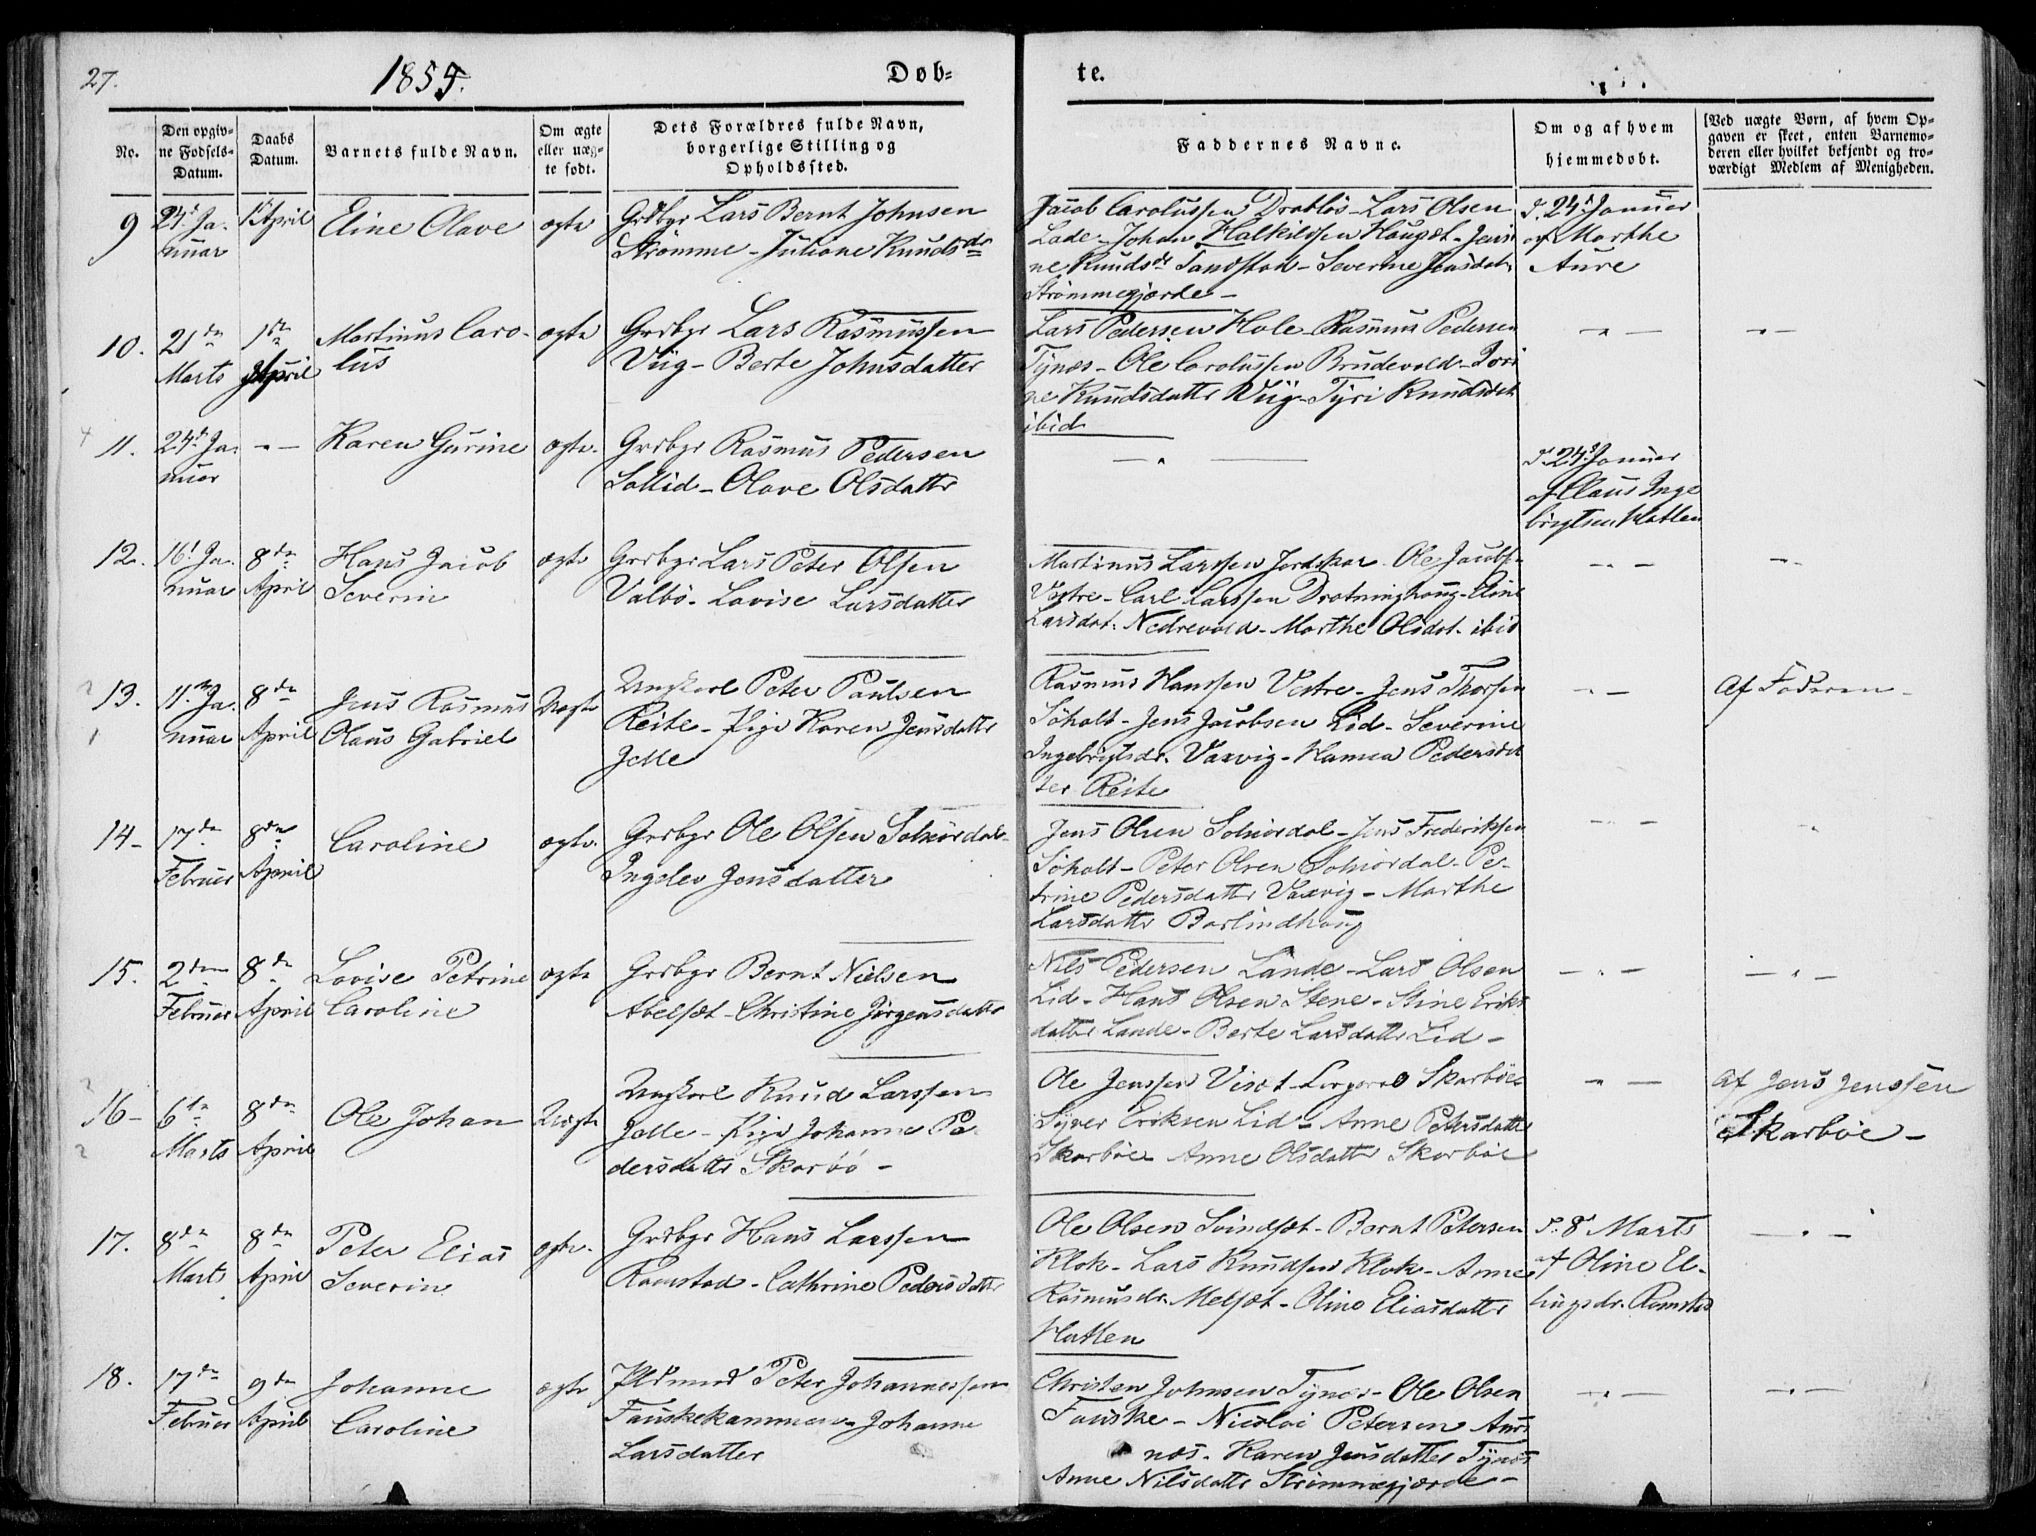 27.
1855.
Døb-
te.
No.
Den opgiv-
ne Fødsels-
Datum.
Daabs
Datum.
Barnets fulde Navn.
Om ægte
eller uæg-
te født.
Dets Forældres fulde Navn,
borgerlige Stilling og
Opholdssted.
Faddernes Navne.
Om og af hvem
hjemmedøbt.
[Ved uægte Børn, af hvem Op-
gaven er skeet, enten Barnemo-
deren eller hvilket bekjendt og tro-
værdigt Medlem af Menigheden.
9
24d Ja-
nuar
1 April
Eline Olave
ægte
Grdbgr Lars Bernt Johnsen
Strømme - Juliane Knudsdr
Jacob Carolussen Drabløs - Lars Olsen
Lade - Johan Halkildsen Haugst - Jensi
ne Knudsdr Tandstad - Severine Jensdat
Strømmegjærde -
d. 24d Januar
af Marthe
Aure
10.
21de
Marts
1ste
April
Martinus Caro-
lus
ægte
Grdbgr Lars Rasmussen
Viig - Berte Johnsdatter
Lars Pedersen Hole - Rasmus Pedersen
Tynæs - Ole Carolussen Brudevold - Jori
ne Knudsdattr Viig - Tyri Knudsdt
ibid
11.
24d Ja-
nuar
- " -
Karen Gurine
ægte.
Grdbgr Rasmus Pedersen
Sollid - Olave Olsdattr
- " -
d. 24d Januar
af Claus Inge
brigtsen Hatlen
12.
16d Ja-
nuar
8de
April
Hans Jacob
Severin
ægte
Grdbgr Lars Peter Olsen
Valbø - Lovise Larsdatter
Martinus Larssen Jordskar - Ole Jacobsen
Vestre - Carl Larssen Drotninghoug - Eline
Larsdat. Nedrevold - Marthe Olsdat. ibid
13.
11te Ja-
nuar
8de
April
Jens Rasmus
Olaus Gabriel
Uægte
Ungkarl Peter Paulsen
Reite - Pige Karen Jensdattr
Jelle
Rasmus Hanssen Vestre - Jens Thorsen
Søholt - Jens Jacobsen Lid - Severine
Ingebrigtsdr. Vaxvig - Hanna Pedersdat
ter Reite
Af Faderen -
14 -
17de
Februar
8de
April
Caroline
ægte.
Grdbgr Ole Olsen Solnørdal
Ingelev Jensdatter
Jens Olsen Solnørdal - Jens Frederikssen
Søholt - Peter Olsen Solnørdal - Pe-
trine Pedersdattr Vaxvig - Marthe
Larsdattr Barlindhoug
15.
2den
Februar
8de
April
Lovise Petrine
Caroline
ægte
Grdbgr Bernt Nielsen
Abelsæt - Christine Jørgensdattr
Nils Pedersen Lande - Lars Olsen
Lid - Hans Olsen Stene - Stine Eriks
datter Lande - Berte Larsdattr Lid -
16 -
6te
Marts
8de
April
Ole Johan
Uægte
Ungkarl Knud Larssen
Jelle - Pige Johanne Pe-
dersdattr Skarbø -
Ole Jenssen Viset - Skarbøe
Syver Eriksen Lid - Anne Petersdattr
Skarbøe Anne Olsdattr Skarbøe
Af Jens Jenssen
Skarbøe -
17.
8de
Marts
8de
April
Peter Elias
Severin
ægte.
Grdbgr Hans Larssen
Ramstad - Cathrine Pedersdattr
Ole Olsen Svindset - Bernt Petersen
Klok - Lars Knudsen Klok - Anne
Rasmusdr. Melsæt - Oline Eliasdattr
Hatlen
d. 8d Marts
af Oline El-
lingsdr. Ramstad
18.
17de
Februar
9de
April
Johanne
Caroline
ægte
Pldsmnd Peter Johannessen
Fauskekammen - Johanne
Larsdatter
Christen Johnsen Tynæs - Ole Olsen
Fauske - Nicolai Petersen Aurs
næs - Karen Jensdatter Tynæs
Anne Nilsdattr Strømmegjærde -